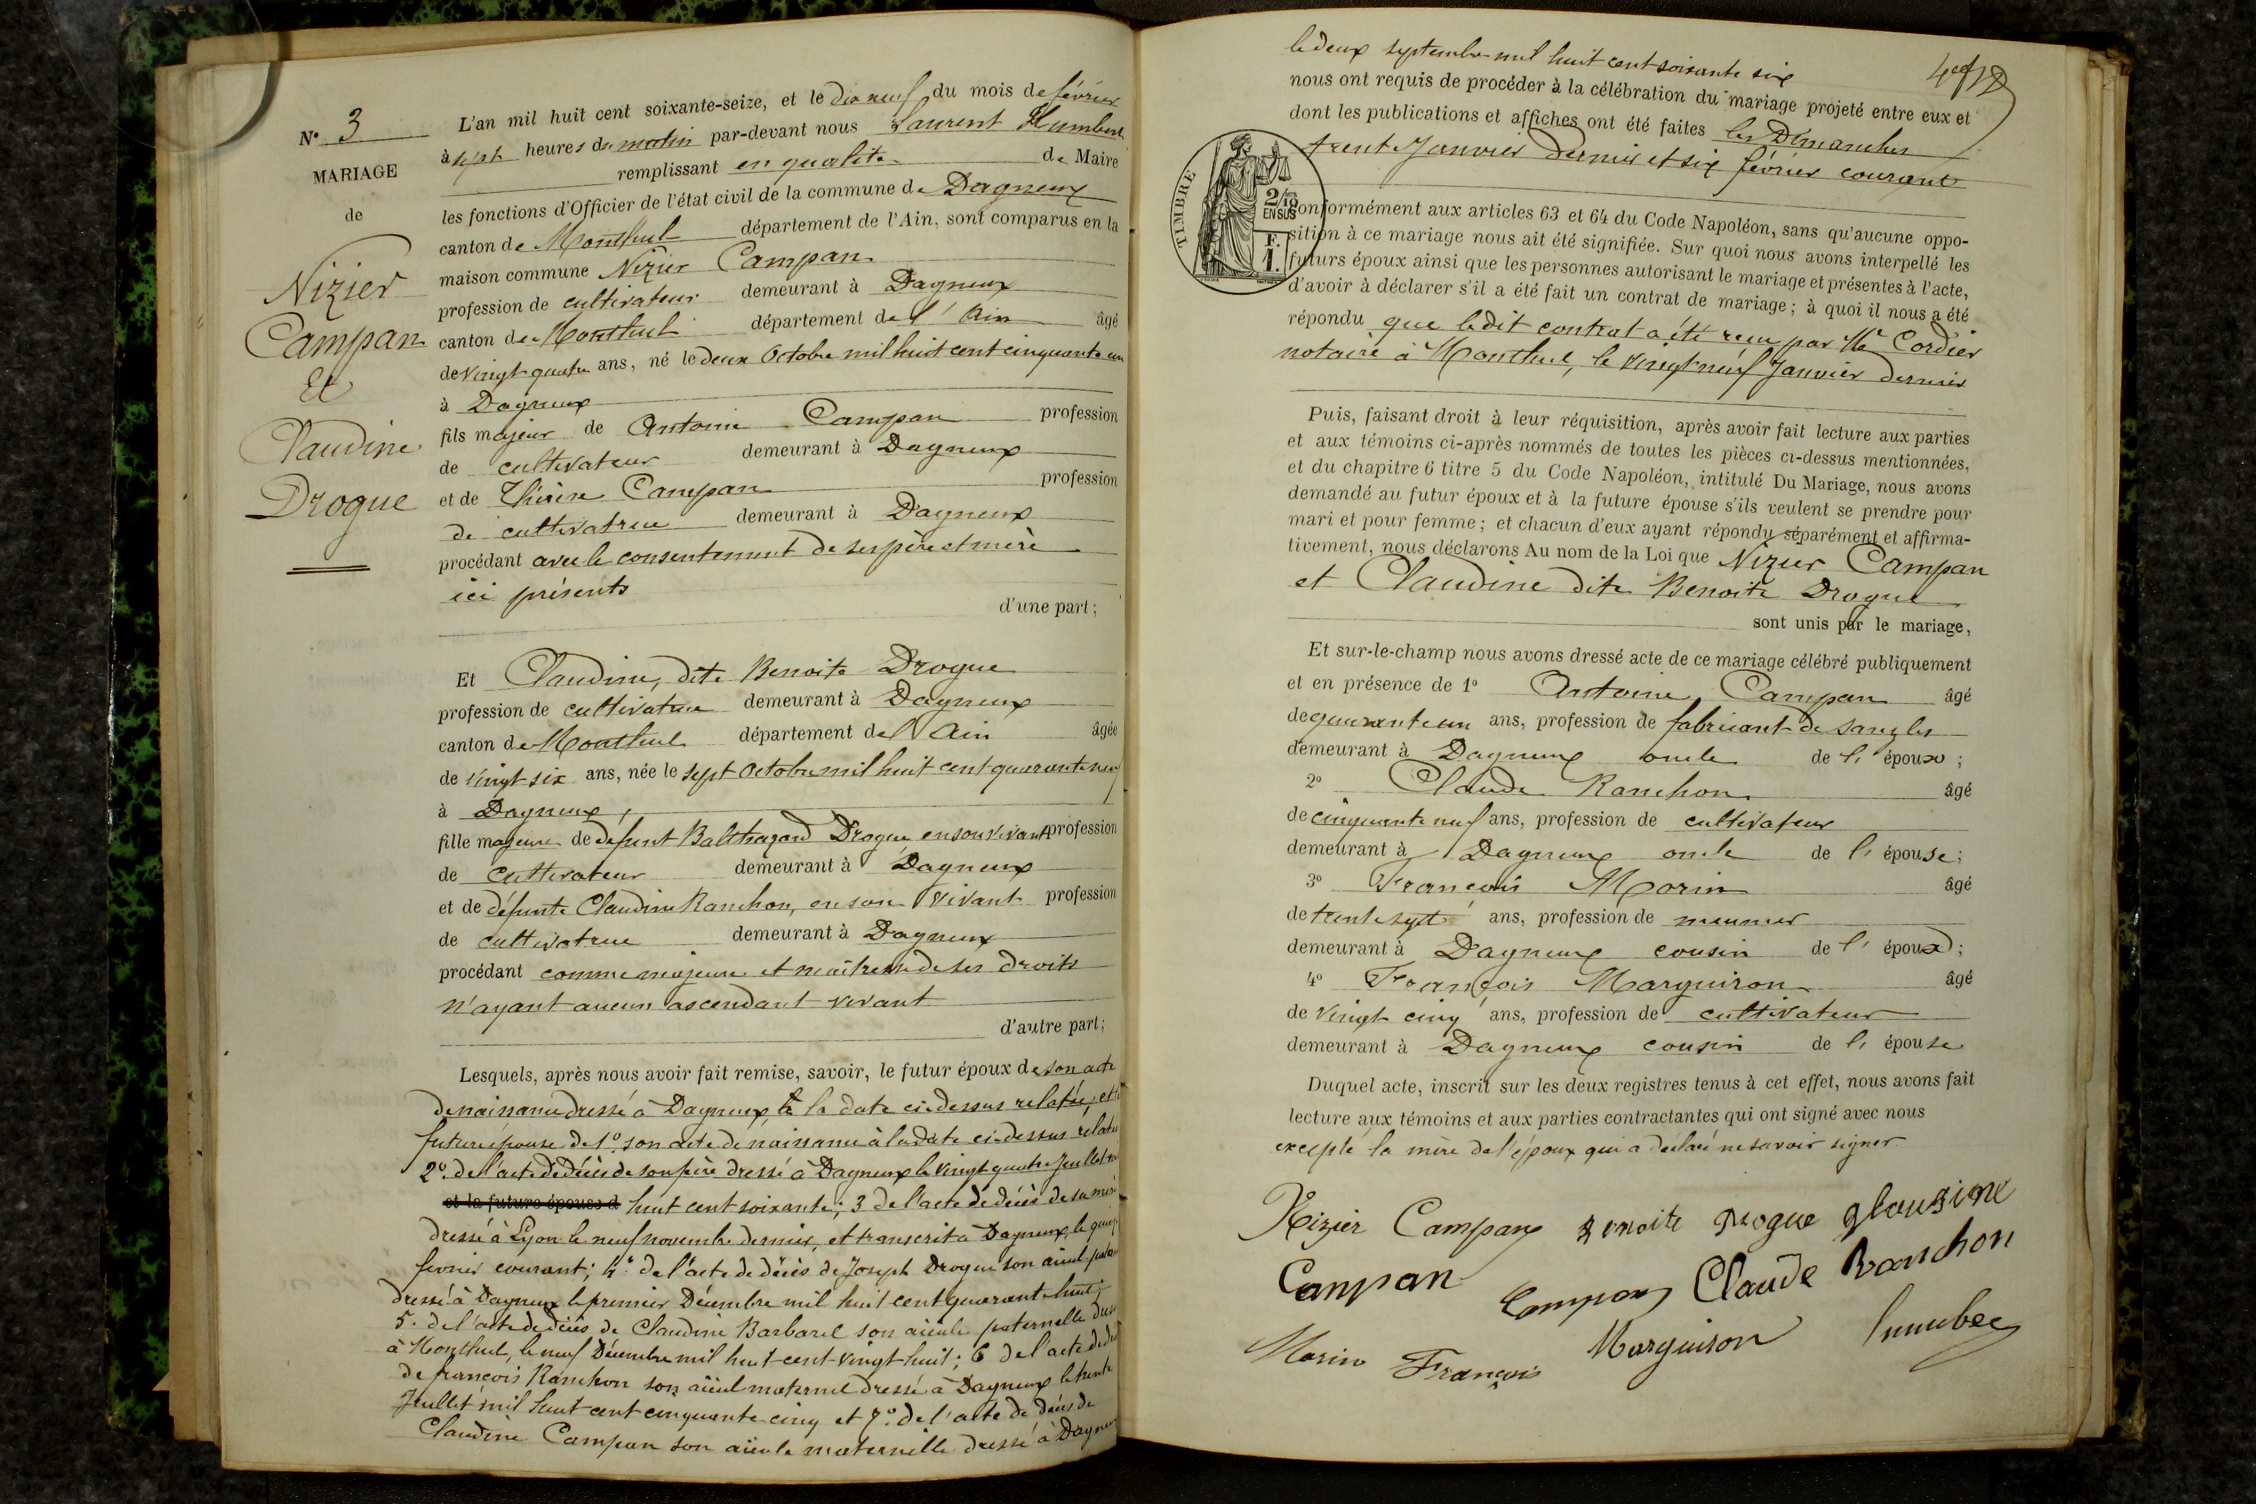 N° 3
MARIAGE
de
Nizier
Campan
Et
Claudine
Drogue
L'an mil huit cent soixante-seize, et le dix neuf du mois de février
à sept heures du matin par-devant nous Laurent Humbert
remplissant en qualité de Maire
les fonctions d'Officier de l'état civil de la commune de Dagneux
canton de Montluel département de l'Ain, sont comparus en la
maison commune Nizier Campan
profession de cultivateur demeurant à Dagneux
canton de Montluel département de l'Ain âgé
de vingt quatre ans, né le deux Octobre mil huit cent cinquante un
à Dagneux
fils majeur de Antoine Campan profession
de cultivateur demeurant à Dagneux
et de Thérèse Campan profession
de cultivatrice demeurant à Dagneux
procédant avec le consentement de ses père et mère
ici présents
d'une part;
Et Claudine, dite Benoite Drogue
profession de cultivatrice demeurant à Dagneux
canton de Montluel département de l'Ain âgée
de vingt six ans, née le sept Octobre mil huit cent quarante neuf
à Dagneux,
fille majeure de défunt Balthazard Drogue en son vivant profession
de cultivateur demeurant à Dagneux
et de défunte Claudine Ranchon, en son vivant profession
de cultivatrice demeurant à Dagneux
procédant comme majeure et maîtresse de ses droits
n'ayant aucun ascendant vivant
d'autre part;
Lesquels, après nous avoir fait remise, savoir, le futur époux de son acte
de naissance dressé à Dagneux à la date ci-dessus relatée, et la
future épouse de 1° son acte de naissance à la date ci-dessus relatée
2° de l'acte de décès de son père dressé à Dagneux le vingt quatre Juillet mil
et la future épouse d huit cent soixante; 3 de l'acte de décès de sa mère
dressé à Lyon le neuf novembre dernier, et transcrit à Dagneux, le quinze
février courant; 4° de l'acte de décès de Joseph Drogue son aïeul paternel
dressé à Dagneux le premier Décembre mil huit cent quarante huit;
5° de l'acte de décès de Claudine Barbarel son aïeule paternelle dressé
à Montluel, le neuf Décembre mil huit cent vingt huit; 6 de l'acte de décès
de françois Ranchon son aïeul maternel dressé à Dagneux le trente
Juillet mil huit cent cinquante cinq et 7° de l'acte de décès de
Claudine Campan son aïeule maternelle dressé à Dagneux
le deux septembre mil huit cent soixante six
nous ont requis de procéder à la célébration du mariage projeté entre eux et
dont les publications et affiches ont été faites les Dimanches
trente Janvier dernier et six février courant
TIMBRE
2/10
EN SUS
F.
1.
conformément aux articles 63 et 64 du Code Napoléon, sans qu'aucune oppo-
sition à ce mariage nous ait été signifiée. Sur quoi nous avons interpellé les
futurs époux ainsi que les personnes autorisant le mariage et présentes à l'acte,
d'avoir à déclarer s'il a été fait un contrat de mariage; à quoi il nous a été
répondu que ledit contrat a été reçu par Me Cordier
notaire à Montluel, le vingt neuf Janvier dernier
Puis, faisant droit à leur réquisition, après avoir fait lecture aux parties
et aux témoins ci-après nommés de toutes les pièces ci-dessus mentionnées,
et du chapitre 6 titre 5 du Code Napoléon, intitulé Du Mariage, nous avons
demandé au futur époux et à la future épouse s'ils veulent se prendre pour
mari et pour femme; et chacun d'eux ayant répondu séparément et affirma-
tivement, nous déclarons Au nom de la Loi que Nizier Campan
et Claudine dite Benoite Drogue
sont unis par le mariage,
Et sur-le-champ nous avons dressé acte de ce mariage célébré publiquement
et en présence de 1° Antoine Campan âgé
de quarante un ans, profession de fabricant de sangles
demeurant à Dagneux oncle de l' époux;
2° Claude Ranchon âgé
de cinquante neuf ans, profession de cultivateur
demeurant à Dagneux oncle de l' épouse;
3° François Morin âgé
de trente sept ans, profession de meunier
demeurant à Dagneux cousin de l' époux;
4° François Marguiron âgé
de vingt cinq ans, profession de cultivateur
demeurant à Dagneux cousin de l' épouse
Duquel acte, inscrit sur les deux registres tenus à cet effet, nous avons fait
lecture aux témoins et aux parties contractantes qui ont signé avec nous
excepté la mère de l'époux qui a déclaré ne savoir signer.
Nizier Campan Benoite Drogue glaudine
Campan Campan Claude Ranchon
Morin François Marguiron Humbert